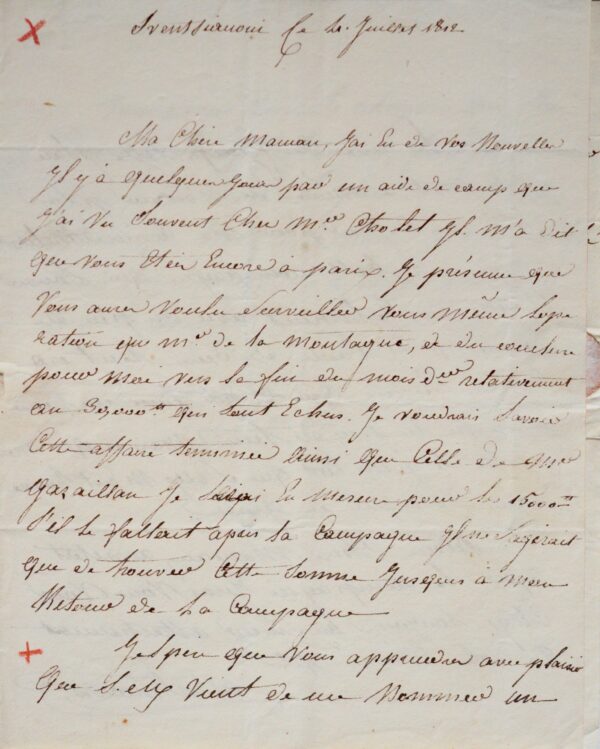 Sventsianoui Ce 4 Juillet 1812
Ma Chere Maman, J'ai Eu de vos Nouvelles
Yl y à quelques jours par un aide de camp que
J'ai vu Souvent Cher Mr Cholet Yl m'a dit
que vous Etier Encore à paris. Je présume que
Vous aurer voulu Surveiller vous même lopé
ration que Mr de la Montagne, a du conclure
pour moi vers la fin du mois der relativement
au 30,000tt qui sont Echus. Je voudrais Savoir
Cette affaire terminée ainsi que Celle de Mr
Gazaillan Je Serai En mesure pour les 15000tt
S'il le fallait après la Campagne Yl ne Sagirait
que de trouver Cette Somme Jusqu'à mon
Retour de La Campagne
J'espere que vous apprendrer avec plaisir
Que S. Vient de me Nommer un